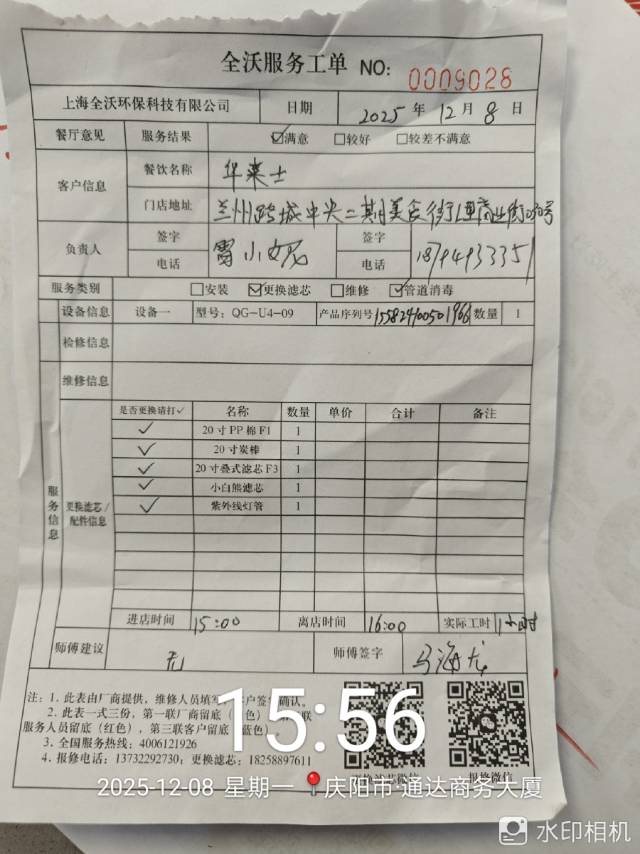 全沃服务工单 NO: 0009028
上海全沃环保科技有限公司 日期 2025 年 12 月 8 日
餐厅意见 服务结果 ☑满意 □较好 □较差不满意
客户信息 餐饮名称 华莱士
门店地址 兰州跨城中央二期美食街
负责人 签字 雷小妮 签字
电话 电话 18794933351
服务类别 □安装 ☑更换滤芯 □维修 ☑管道消毒
设备信息 设备一 型号: QG-U4-09 产品序列号 数量 1
检修信息
维修信息
服务信息
更换滤芯/配件信息
是否更换请打✓ 名称 数量 单价 合计 备注
✓ 20寸PP棉F1 1
✓ 20寸炭棒 1
✓ 20寸叠式滤芯F3 1
✓ 小白熊滤芯 1
✓ 紫外线灯管 1
进店时间 15:00 离店时间 16:00 实际工时 1小时
师傅建议 无 师傅签字 马海龙
注: 1. 此表由厂商提供，维修人员填写 客户签 确认。
2. 此表一式三份，第一联厂商留底
服务人员留底（红色），第三联客户留底 蓝色）
3. 全国服务热线: 4006121926
4. 报修电话: 13732292730; 更换滤芯: 18258897611
更换滤芯微信 报修微信
15:56
2025-12-08 星期一 庆阳市·通达商务大厦
水印相机